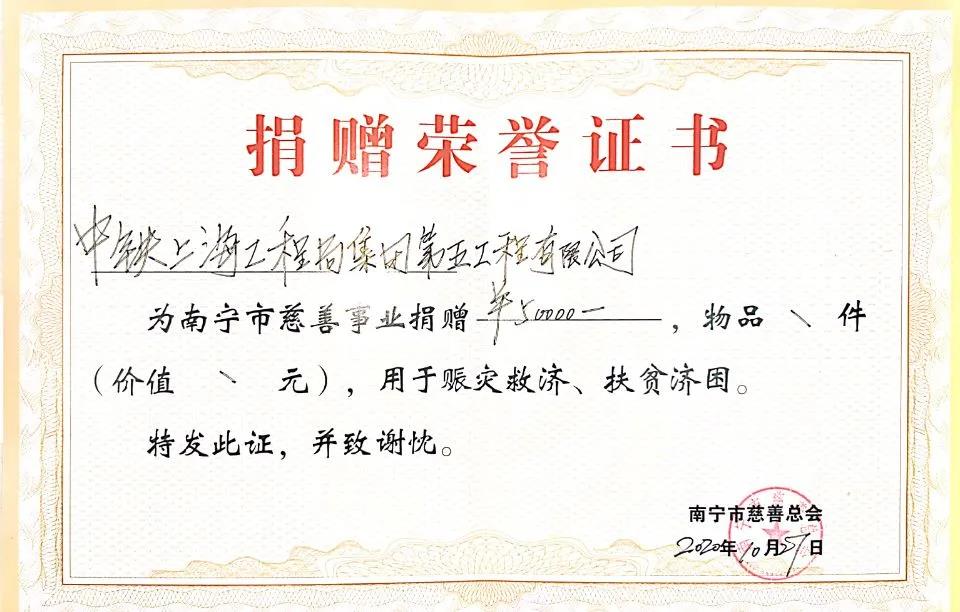 捐赠荣誉证书
中铁上海工程局集团第五工程有限公司
为南宁市慈善事业捐赠 ¥50000一 ，物品 \ 件
（价值 \ 元），用于赈灾救济、扶贫济困。
特发此证，并致谢忱。
南宁市慈善总会
2020年10月27日